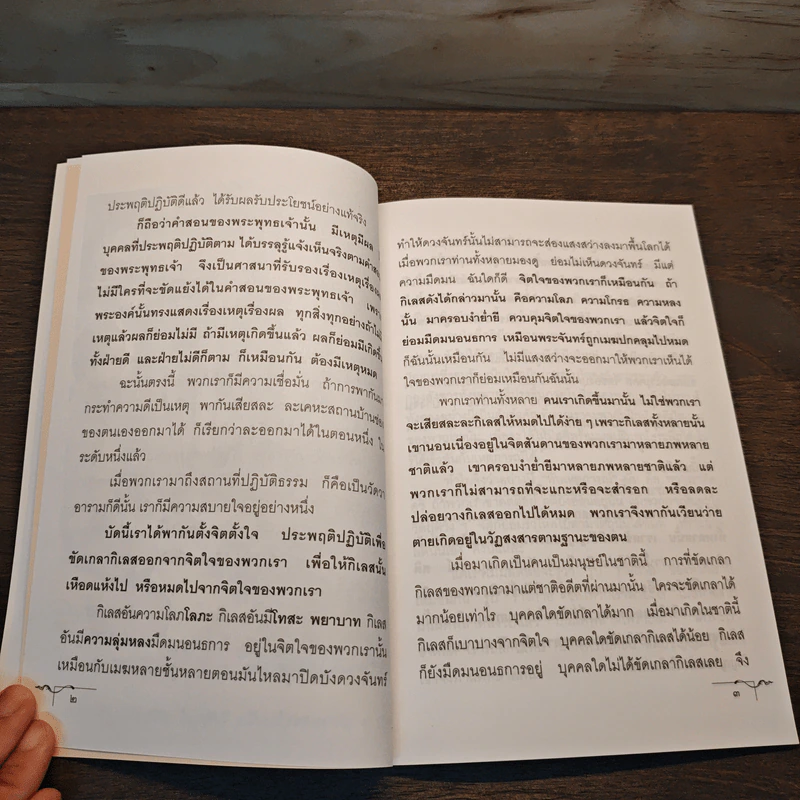 ประพฤติปฏิบัติดีแล้ว ได้รับผลรับประโยชน์อย่างแท้จริง
ก็ถือว่าคำสอนของพระพุทธเจ้านั้น มีเหตุมีผล
บุคคลที่ประพฤติปฏิบัติตาม ได้บรรลุรู้แจ้งเห็นจริงตามคำสอน
ของพระพุทธเจ้า จึงเป็นศาสนาที่รับรองเรื่องเหตุเรื่อง
ไม่มีใครที่จะขัดแย้งได้ในคำสอนของพระพุทธเจ้า เพรา
พระองค์นั้นทรงแสดงเรื่องเหตุเรื่องผล ทุกสิ่งทุกอย่างถ้าไม่มี
เหตุแล้วผลก็ย่อมไม่มี ถ้ามีเหตุเกิดขึ้นแล้ว ผลก็ย่อมมีเกิดขึ้น
ทั้งฝ่ายดี และฝ่ายไม่ดีก็ตาม ก็เหมือนกัน ต้องมีเหตุหมด
ฉะนั้นตรงนี้ พวกเราก็มีความเชื่อมั่น ถ้าการพากันมา
กระทำความดีเป็นเหตุ พากันเสียสละ ละเคหะสถานบ้านช่อง
ของตนเองออกมาได้ ก็เรียกว่าละออกมาได้ในตอนหนึ่ง ใน
ระดับหนึ่งแล้ว
เมื่อพวกเรามาถึงสถานที่ปฏิบัติธรรม ก็คือเป็นวัดวา
อารามก็ดีนั้น เราก็มีความสบายใจอยู่อย่างหนึ่ง
บัดนี้เราได้พากันตั้งจิตตั้งใจ ประพฤติปฏิบัติเพื่อ
ขัดเกลากิเลสออกจากจิตใจของพวกเรา เพื่อให้กิเลสนั้น
เหือดแห้งไป หรือหมดไปจากจิตใจของพวกเรา
กิเลสอันความโลภโลภะ กิเลสอันมีโทสะ พยาบาท กิเลส
อันมีความลุ่มหลงมืดมนอนธการ อยู่ในจิตใจของพวกเรานั้น
เหมือนกับเมฆหลายชั้นหลายตอนมันไหลมาปิดบังดวงจันทร์
๒
ทำให้ดวงจันทร์นั้นไม่สามารถจะส่องแสงสว่างลงมาพื้นโลกได้
เมื่อพวกเราท่านทั้งหลายมองดู ย่อมไม่เห็นดวงจันทร์ มีแต่
ความมืดมน ฉันใดก็ดี จิตใจของพวกเราก็เหมือนกัน ถ้า
กิเลสดังได้กล่าวมานั้น คือความโลภ ความโกรธ ความหลง
นั้น มาครอบงำย่ำยี ควบคุมจิตใจของพวกเรา แล้วจิตใจก็
ย่อมมืดมนอนธการ เหมือนพระจันทร์ถูกเมฆปกคลุมไปหมด
ก็ฉันนั้นเหมือนกัน ไม่มีแสงสว่างจะออกมาให้พวกเราเห็นได้
ใจของพวกเราก็ย่อมเหมือนกันฉันนั้น
พวกเราท่านทั้งหลาย คนเราเกิดขึ้นมานั้น ไม่ใช่พวกเรา
จะเสียสละละกิเลสให้หมดไปได้ง่าย ๆ เพราะกิเลสทั้งหลายนั้น
เขานอนเนื่องอยู่ในจิตสันดานของพวกเรามาหลายภพหลาย
ชาติแล้ว เขาครอบงำย่ำยีมาหลายภพหลายชาติแล้ว แต่
พวกเราก็ไม่สามารถที่จะแกะหรือจะสำรอก หรือลดละ
ปล่อยวางกิเลสออกไปได้หมด พวกเราจึงพากันเวียนว่าย
ตายเกิดอยู่ในวัฏสงสารตามฐานะของตน
เมื่อมาเกิดเป็นคนเป็นมนุษย์ในชาตินี้ การที่ขัดเกลา
กิเลสของพวกเรามาแต่ชาติอดีตที่ผ่านมานั้น ใครจะขัดเกลาได้
มากน้อยเท่าไร บุคคลใดขัดเกลาได้มาก เมื่อมาเกิดในชาตินี้
กิเลสก็เบาบางจากจิตใจ บุคคลใดขัดเกลากิเลสได้น้อย กิเลส
ก็ยังมืดมนอนธการอยู่ บุคคลใดไม่ได้ขัดเกลากิเลสเลย จึง
๓